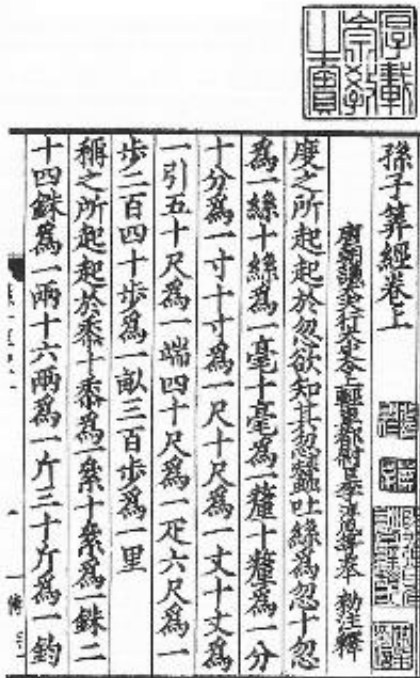 孫子筭經卷上
唐朝議大夫行太史令上輕車都尉臣李淳風等奉 勅注釋
度之所起起於忽欲知其忽蠶吐絲爲忽十忽
爲一絲十絲爲一毫十毫爲一釐十釐爲一分
十分爲一寸十寸爲一尺十尺爲一丈十丈爲
一引五十尺爲一端四十尺爲一疋六尺爲一
歩二百四十歩爲一畝三百歩爲一里
稱之所起起於黍十黍爲一絫十絫爲一銖二
十四銖爲一兩十六兩爲一斤三十斤爲一鈞